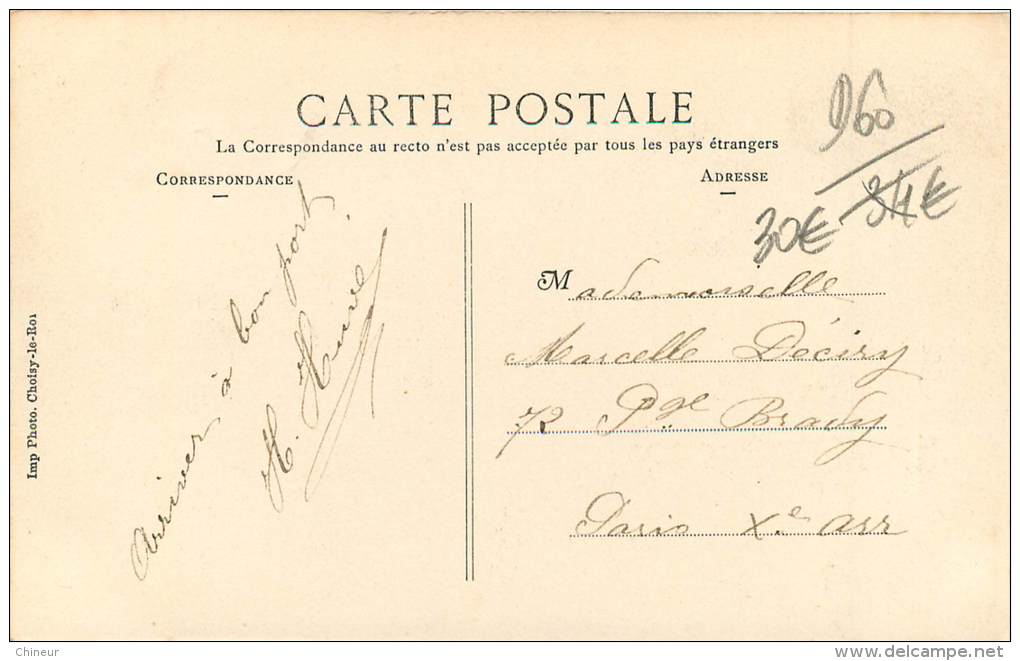 CARTE POSTALE
La Correspondance au recto n'est pas acceptée par tous les pays étrangers
CORRESPONDANCE
ADRESSE
960
30€ 34€
Arriver à bon port
H. Huvé
Mademoiselle
Marcelle Déciry
72 Pge Brady
Paris Xe arr
Imp Photo. Choisy-le-Roi
Chineur
www.delcampe.net